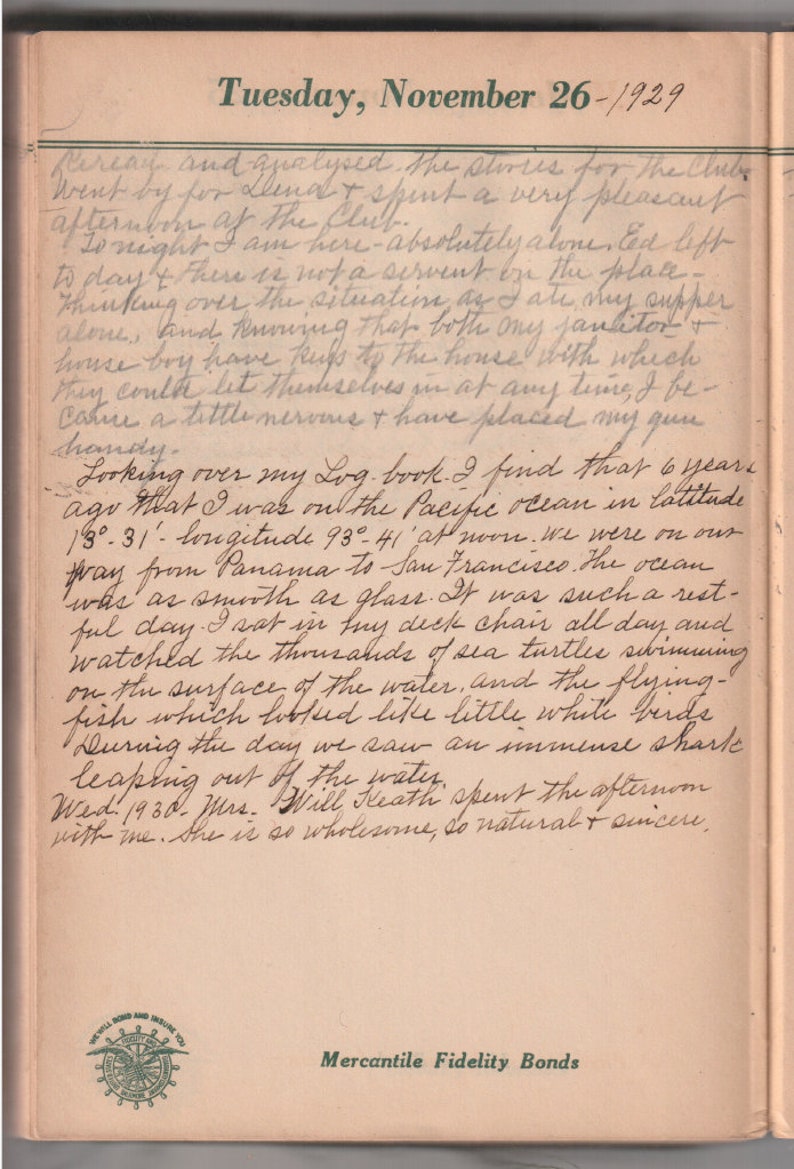 Tuesday, November 26 - 1929
Reread and analysed the stories for the Club.
Went by for Lena + spent a very pleasant
afternoon at the Club.
Tonight I am here - absolutely alone. Ed left
to day + there is not a servent on the place -
Thinking over the situation as I ate my supper
alone, and knowing that both my janitor +
house boy have keys to the house with which
they could let themselves in at any time, I be-
came a little nervous + have placed my gun
handy.
Looking over my Log-book I find that 6 years
ago that I was on the Pacific ocean in latitude
13°-31' - longitude 93°-41' at noon. We were on our
way from Panama to San Francisco. The ocean
was as smooth as glass. It was such a rest-
ful day. I sat in my deck chair all day and
watched the thousands of sea turtles swimming
on the surface of the water, and the flying-
fish which looked like little white birds
During the day we saw an immense shark
leaping out of the water.
Wed. 1930 - Mrs. Will Keath spent the afternoon
with me. She is so wholesome, so natural + sincere.
WE WILL BOND AND INSURE YOU
FIDELITY AND
Mercantile Fidelity Bonds